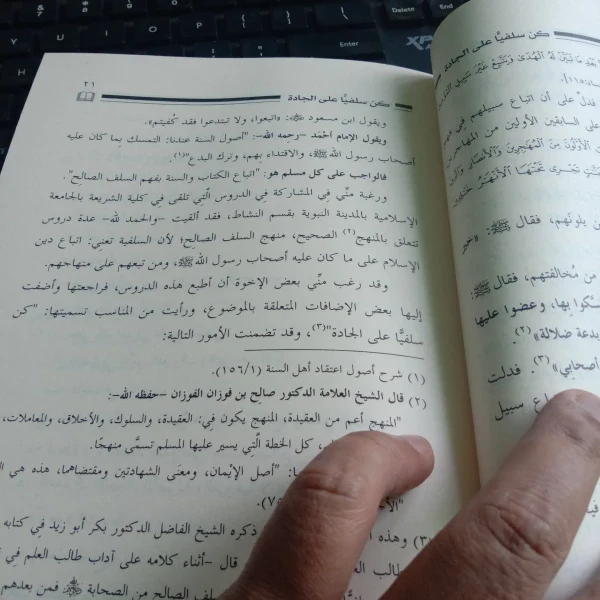 كن سلفيًّا على الجادة
٢١
ويقول ابن مسعود ﷺ: «اتبعوا، ولا تبتدعوا فقد كُفيتم».
ويقول الإمام أحْمَد -رحِمه الله-: "أصول السنة عندنا: التمسك بِما كان عليه
أصحاب رسول الله ﷺ، والاقتداء بِهم، وترك البدع"(١).
فالواجب على كل مسلم هو: "اتباع الكتاب والسنة بفهم السلف الصالِح".
ورغبة منِّي فِي المشاركة فِي الدروس الَّتِي تلقى فِي كلية الشريعة بالجامعة
الإسلامية بالمدينة النبوية بقسم النشاط، فقد ألقيت -والحمد لله- عدة دروس
تتعلق بالمنهج(٢) الصحيح، منهج السلف الصالِح؛ لأن السلفية تعنِي: اتباع دين
الإسلام على ما كان عليه أصحاب رسول الله ﷺ، ومن تبعهم على منهاجهم.
وقد رغب منِّي بعض الإخوة أن أطبع هذه الدروس، فراجعتها وأضفت
إليها بعض الإضافات المتعلقة بالموضوع، ورأيت من المناسب تسميتها: "كن
سلفيًّا على الجادة"(٣)، وقد تضمنت الأمور التالية:
(١) شرح أصول اعتقاد أهل السنة (١٥٦/١).
(٢) قال الشيخ العلامة الدكتور صالِح بن فوزان الفوزان -حفظه الله-:
"المنهج أعم من العقيدة، المنهج يكون فِي: العقيدة، والسلوك، والأخلاق، والمعاملات،
كل الخطة الَّتِي يسير عليها المسلم تسمَّى منهجًا.
"أصل الإيْمان، ومعنَى الشهادتين ومقتضاهما، هذه هي
وهذه
ذكره الشيخ الفاضل الدكتور بكر أبو زيد فِي كتابه
قال -أثناء كلامه على آداب طالب العلم فِي
السلف الصالِح من الصحابة ﷺ فمن بعدهم
كن سلفيًّا على الجادة
فدلَّ على أن اتباع سبيلهم
على السابقين الأولين من المهاجرين
يلونَهم، فقال ﷺ: «خير
من مُخالفتهم، فقال ﷺ:
بِها، وعضوا عليها
بدعة ضلالة»(٢).
أصحابِي»(٣). فدلت
سبيل
Enter
Delete
End